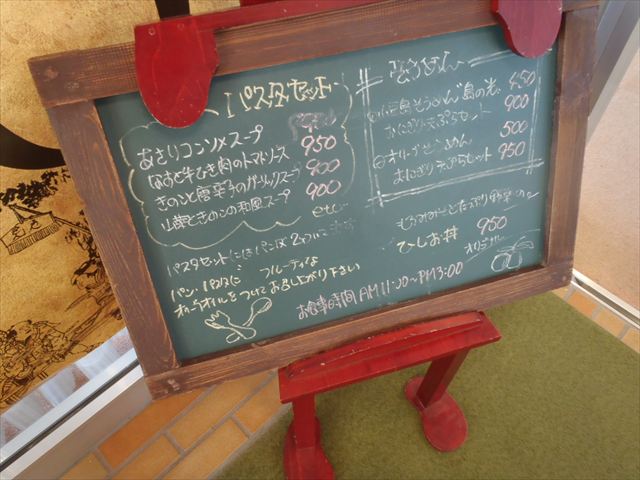 パスタセット
あさりコンソメスープ 950
なすと牛ひき肉のトマトソース 950
きのこと唐辛子のガーリックスープ 900
山菜ときのこの和風スープ 900
etc
パスタセットにはパンが2つ
パン、パスタに フルーティな
オリーブオイルをつけてお召し上がり下さい
そうめん
小豆島そうめん「島の光」 450
おにぎり天ぷらセット 900
オリーブそうめん 500
おにぎり天ぷらセット 950
もろみ とたっぷり野菜の
ひしお丼 950
お食事時間 AM11:00~PM3:00